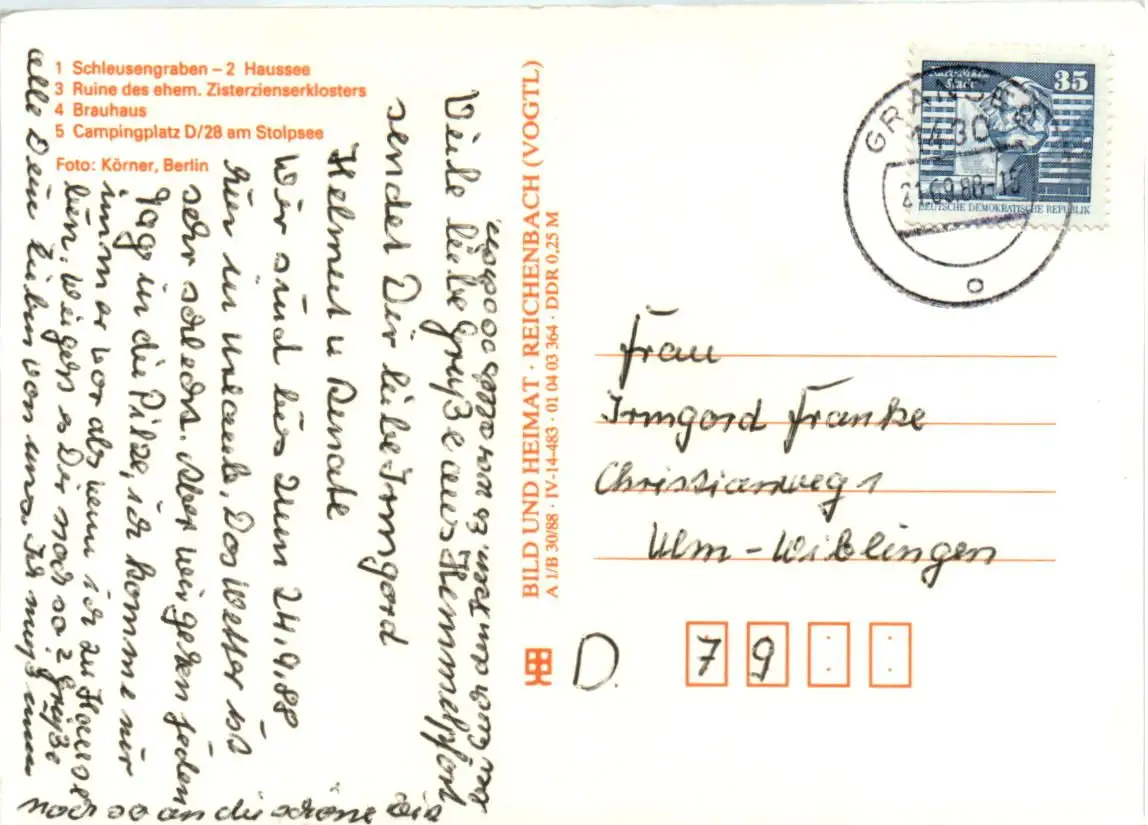 1 Schleusengraben – 2 Haussee
3 Ruine des ehem. Zisterzienserklosters
4 Brauhaus
5 Campingplatz D/28 am Stolpsee
Foto: Körner, Berlin
Viele liebe Grüße aus Himmelpfort
sendet Dir liebe Irmgard
Helmut u Renate
Wir sind bis zum 24.9.88
hier in Urlaub. Das Wetter ist
sehr schlecht. Aber wir gehen jeden
Tag in die Pilze, ich komme mir
immer vor als wenn ich zu Hause
bin. Weigers Dir noch so 2 Grüße
alle Dein Lieben von uns. Ich muß immer
noch so an die schöne Zeit
bei Euch denken es war
BILD UND HEIMAT · REICHENBACH (VOGTL)
A 1/B 30/88 · IV-14-483 · 01 04 03 364 · DDR 0,25 M
35
DEUTSCHE DEMOKRATISCHE REPUBLIK
GRANSEE
1430
21.09.88-15
o
Frau
Irmgard Franke
Christianweg 1
Ulm-Wiblingen
D. 79